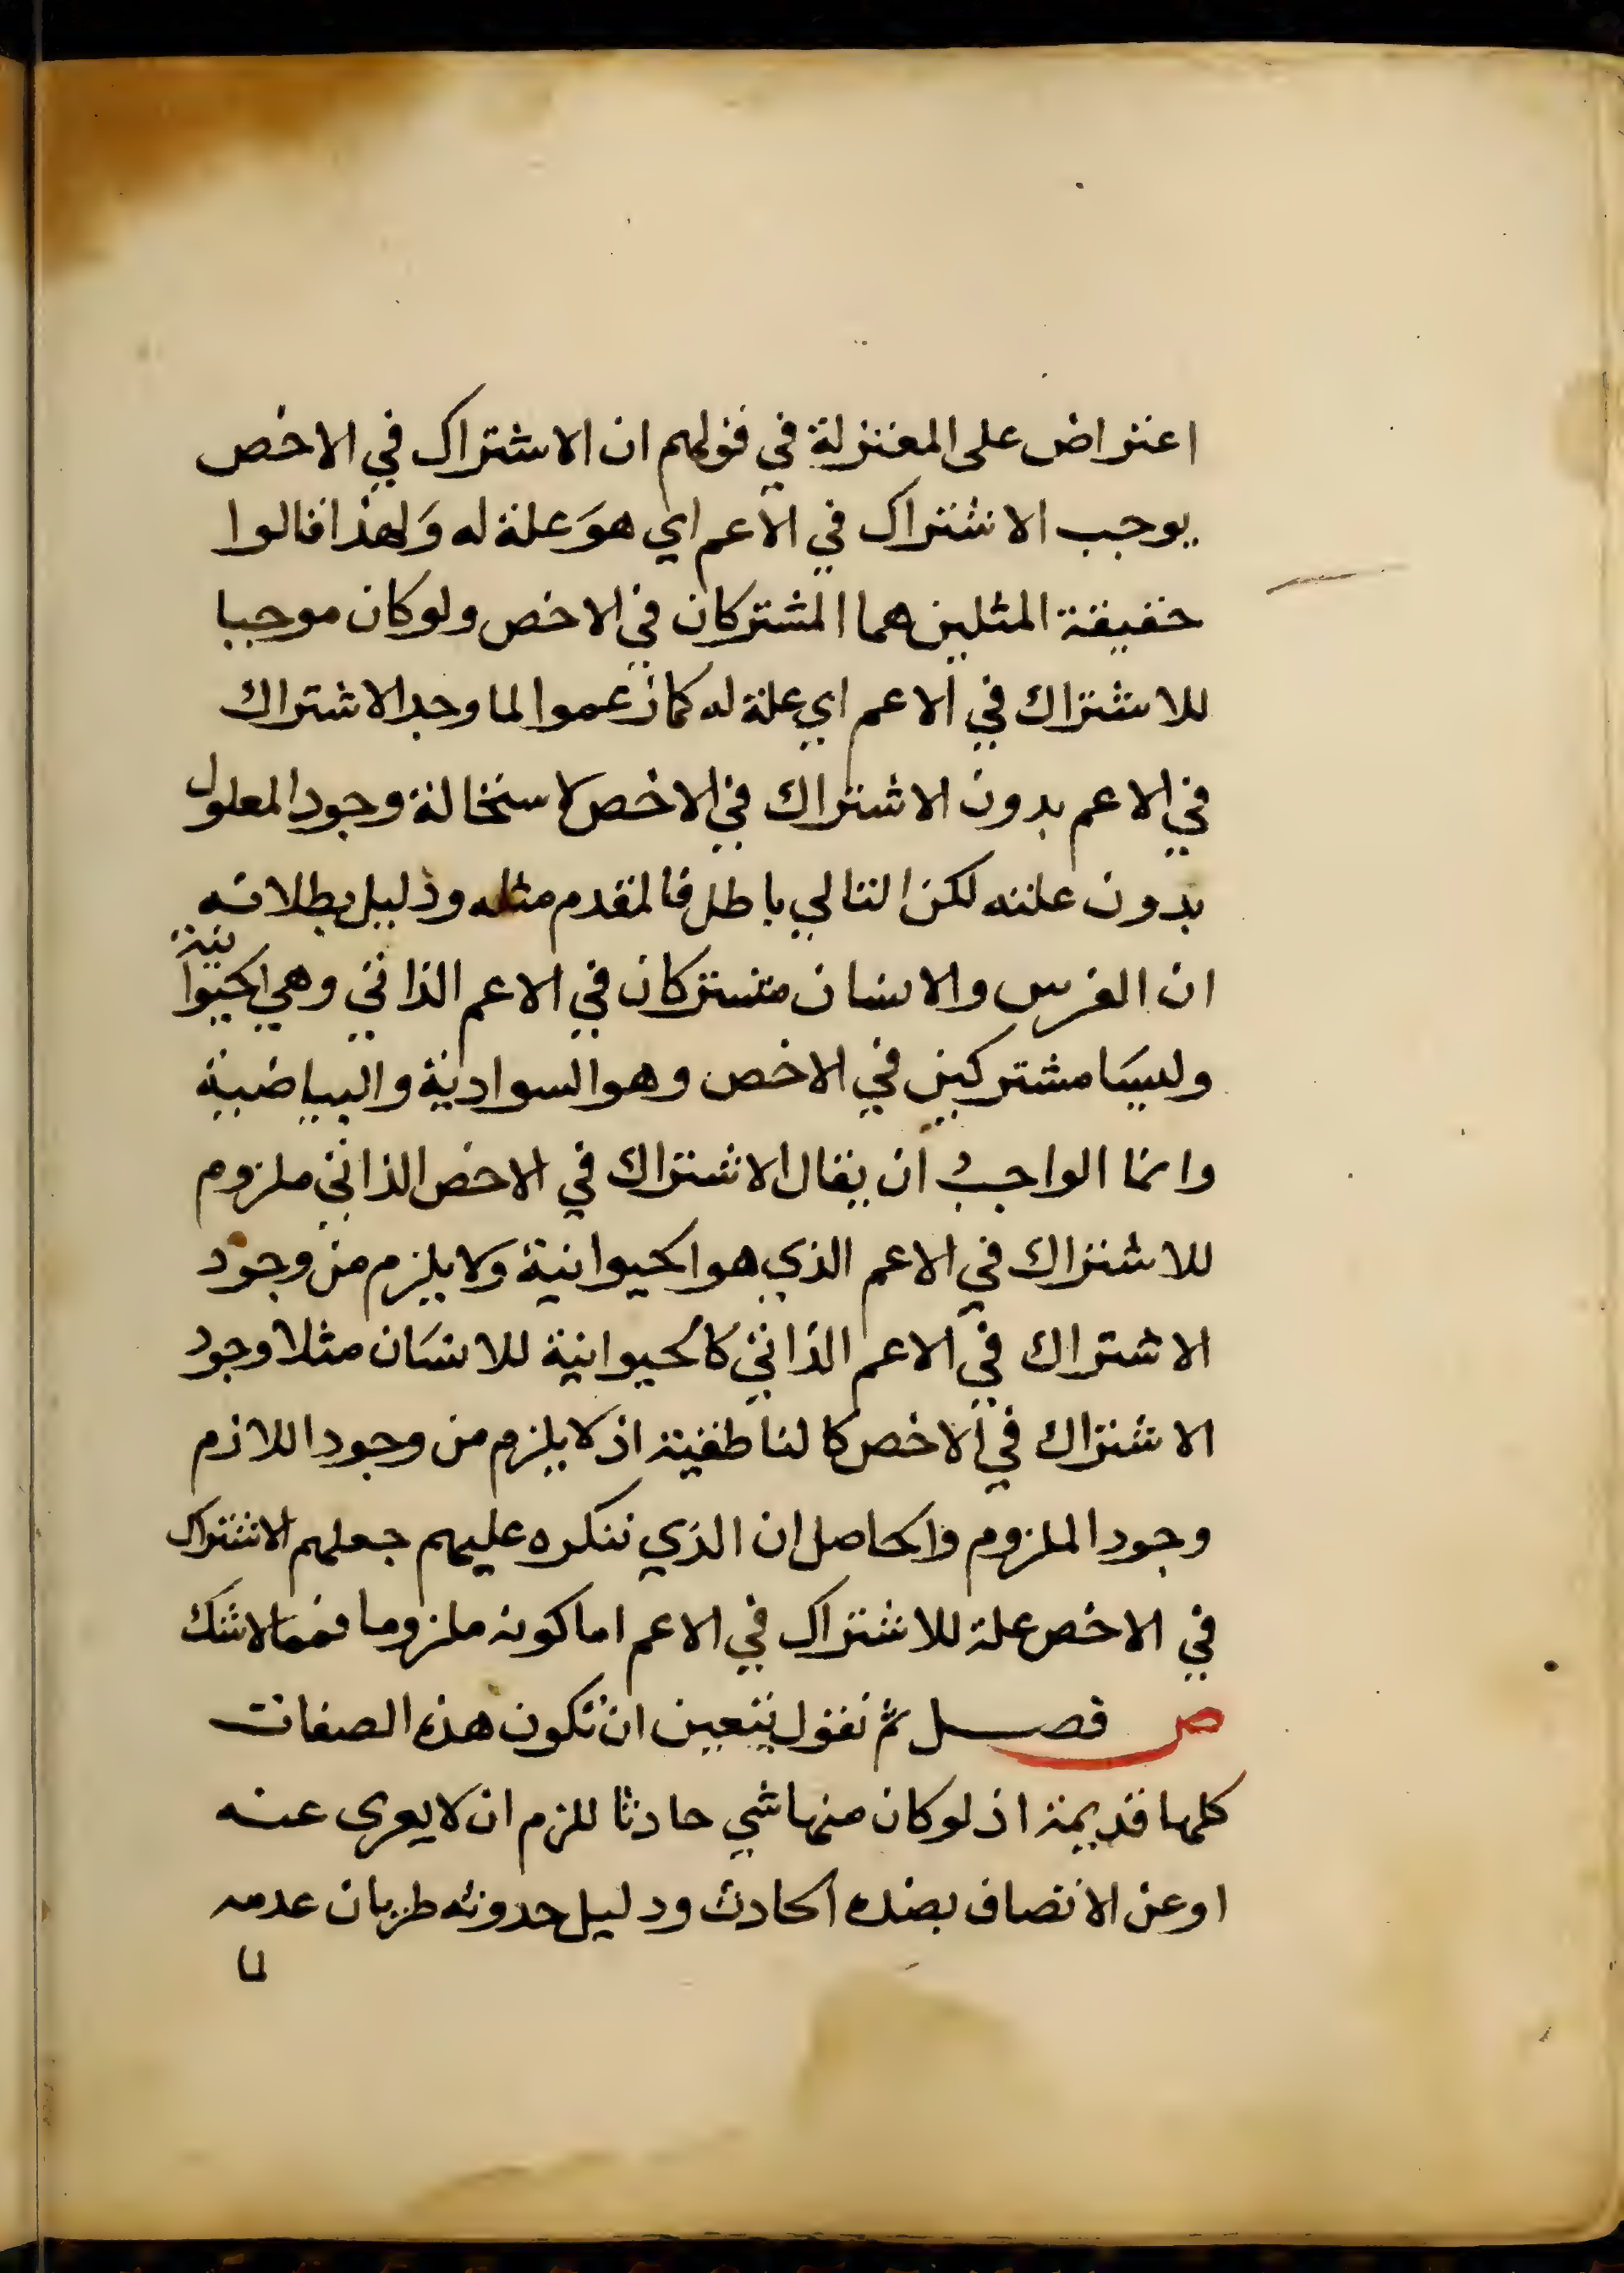 اعتراض على المعتزلة في قولهم ان الاشتراك في الاخص
يوجب الاشتراك في الاعم اي هوَ علة له وَلهذا قالوا
حقيقة المثلين هما المشتركان في الاخص ولو كان موجبا
للاشتراك في الاعم اي علة له كما زعموا لما وجد الاشتراك
في الاعم بدون الاشتراك في الاخص لاستحالة وجود المعلول
بدون علته لكن التالي باطل فالمقدم مثله ودليل بطلانه
ان الفرس والانسان مشتركان في الاعم الذاتي وهي الحيوانية
وليسَا مشتركين في الاخص وهو السوادية والبياضية
وانما الواجبُ ان يقال الاشتراك في الاخص الذاتي ملزوم
للاشتراك في الاعم الذي هو الحيوانية وَلا يلزم من وجود
الاشتراك في الاعم الذاتي كالحيوانية للانسَان مثلا وجود
الاشتراك في الاخص كالناطقية اذ لا يلزم من وجود اللازم
وجود الملزوم والحاصل ان الذي ننكره عليهم جعلهم الاشتراك
في الاخص علة للاشتراك في الاعم اما كونه ملزوما فمما لا شك
ص فصل ثم نقول يتعين ان تكون هذه الصفات
كلها قديمة اذ لو كان منها شي حادثا للزم ان لا يعرى عنه
او عن الاتصاف بضده الحادث ودليل حدوثه طريان عدمه
لما